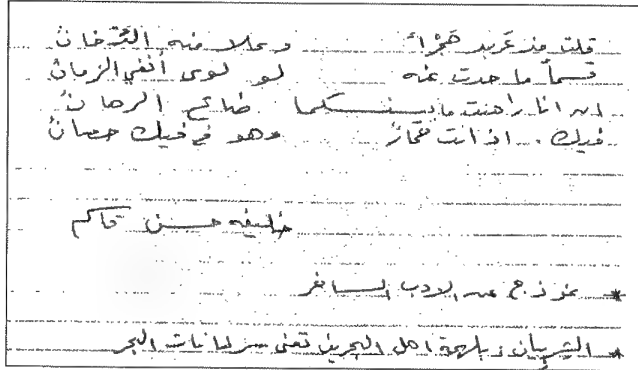 قلت مذ عربد هجراً وعلا منه الدخان
قسماً ما حدت عنه لو لوى أنفي الزمان
انا راهنت ضائع الرهان
فيك. اذ انت مجاز وهو في فيك حصان
خليفه حسن قاسم
* نموذج من الادب الساخر
* الشريبان: بلهجة اهل البحرين تعني سرطانات البحر